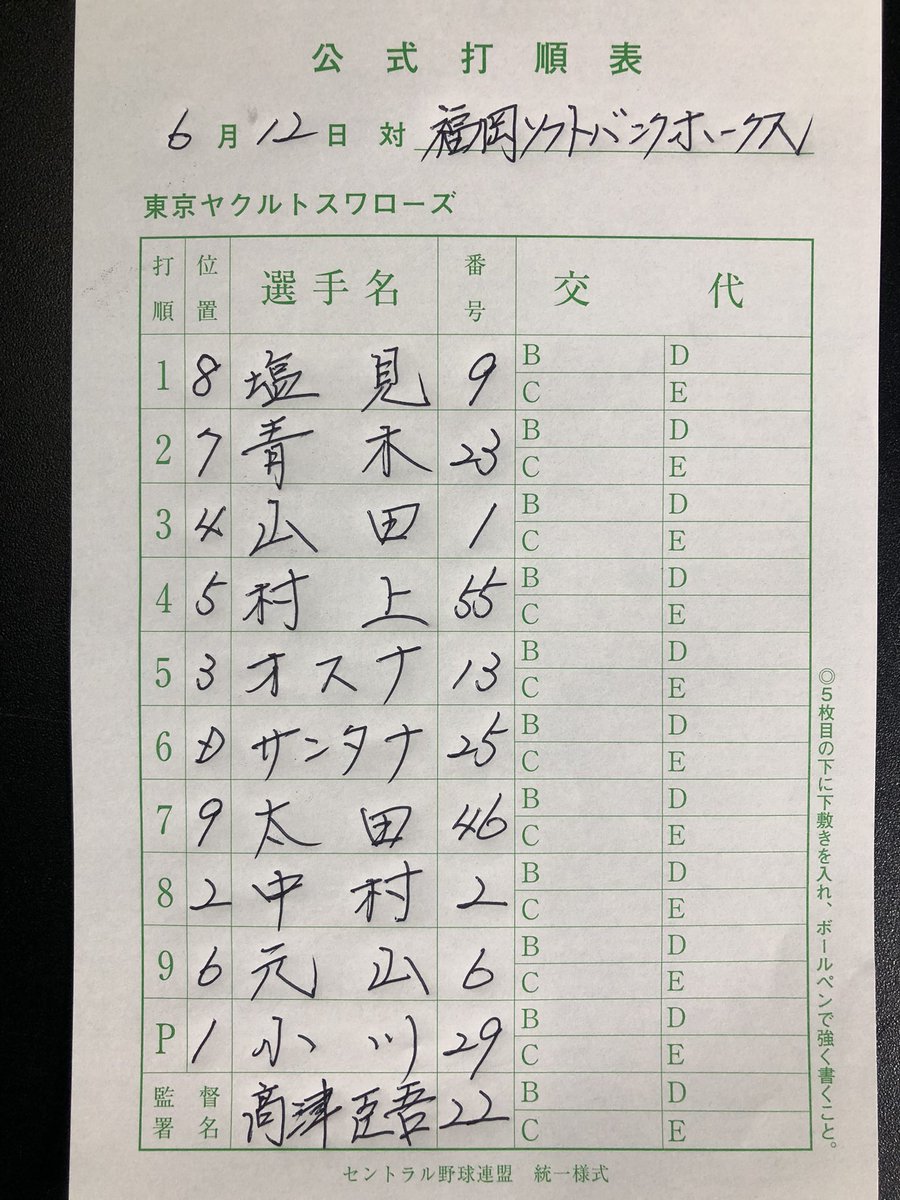 公式打順表
6月12日 対 福岡ソフトバンクホークス
東京ヤクルトスワローズ
打順 位置 選手名 番号 交代
1 8 塩見 9 B D
C E
2 7 青木 23 B D
C E
3 4 山田 1 B D
C E
4 5 村上 55 B D
C E
5 3 オスナ 13 B D
C E
6 D サンタナ 25 B D
C E
7 9 太田 46 B D
C E
8 2 中村 2 B D
C E
9 6 元山 6 B D
C E
P 1 小川 29 B D
C E
監督署名 高津臣吾 22 B D
C E
◎5枚目の下に下敷きを入れ、ボールペンで強く書くこと。
セントラル野球連盟 統一様式